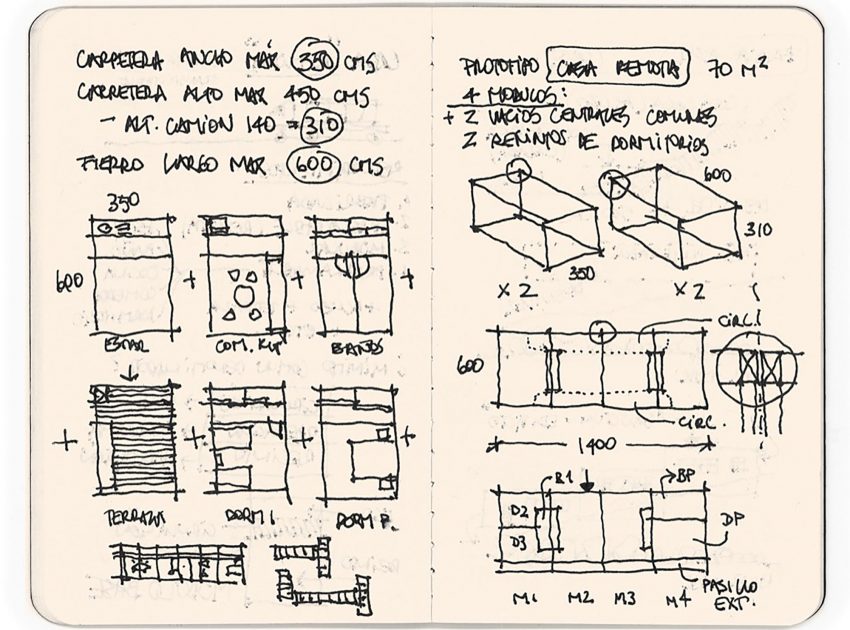 CARRETERA ANCHO MÁX 350 CMS
CARRETERA ALTO MAX 450 CMS
- ALT. CAMION 140 = 310
FIERRO LARGO MAX 600 CMS
350
600
+
+
+
ESTAR
BAÑOS
+
+
+
+
TERRAZA
DORM 1
DORM P.
PROTOTIPO CASA REMOTA 70 M²
4 MODULOS:
+ 2 VACIOS CENTRALES COMUNES
2 RECINTOS DE DORMITORIOS
600
310
350
X 2
X 2
CIRC.
600
CIRC.
1400
B1
BP
D2
D3
DP
PASILLO EXT.
M1 M2 M3 M4